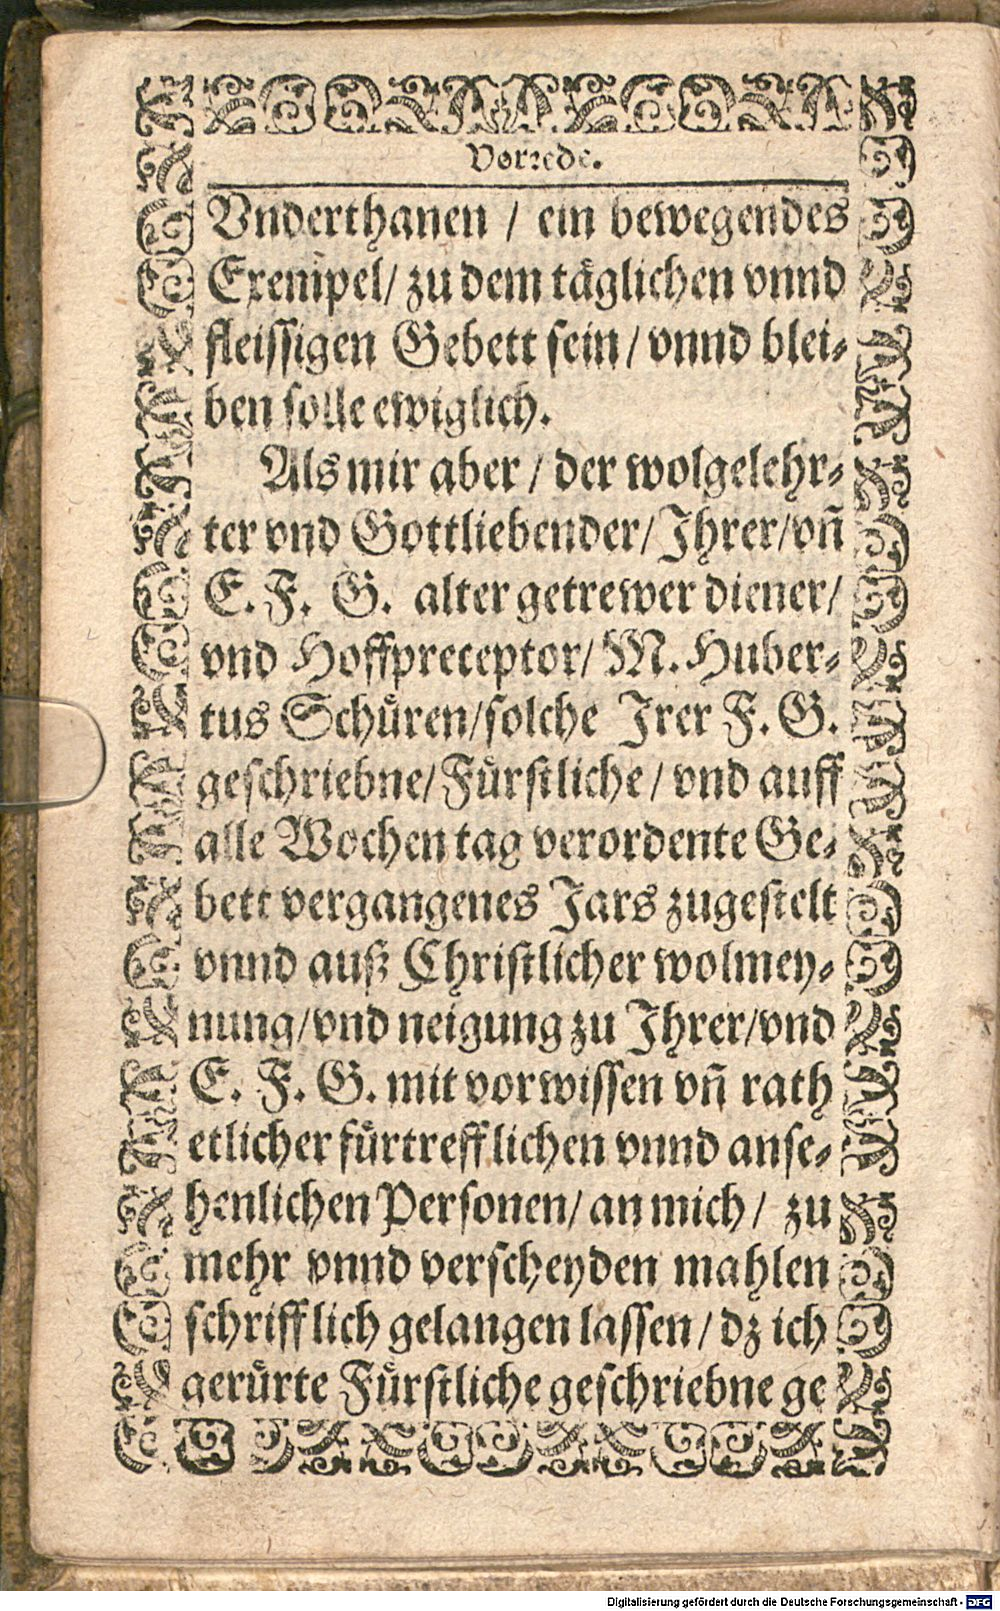 Vorrede.
Vnderthanen / ein bewegendes
Exempel / zu dem täglichen vnnd
fleissigen Gebett sein / vnnd blei-
ben solle ewiglich.
Als mir aber / der wolgelehr-
ter vnd Gottliebender / Jhrer / vñ
E. F. G. alter getrewer diener /
vnd Hoffpreceptor / M. Huber-
tus Schůren / solche Jrer F. G.
geschriebne / Fůrstliche / vnd auff
alle Wochen tag verordente Ge-
bett vergangenes Jars zugestelt
vnnd auß Christlicher wolmey-
nung / vnd neigung zu Jhrer / vnd
E. F. G. mit vorwissen vñ rath
etlicher fůrtrefflichen vnnd anse-
henlichen Personen / an mich / zu
mehr vnnd verscheyden mahlen
schrifflich gelangen lassen / dz ich
gerůrte Fůrstliche geschriebne ge
Digitalisierung gefördert durch die Deutsche Forschungsgemeinschaft - DFG